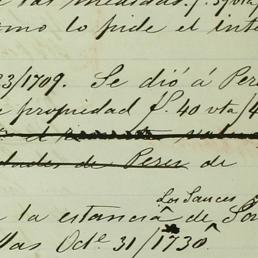 las medidas. f. 39 vta
como lo pide el inte
23/1709. Se dió á Pere
e propiedad f. 40 vta/4
dades de Peres de
Los Sauces
a la estancia de Sor
llas Oct.e 31/1730